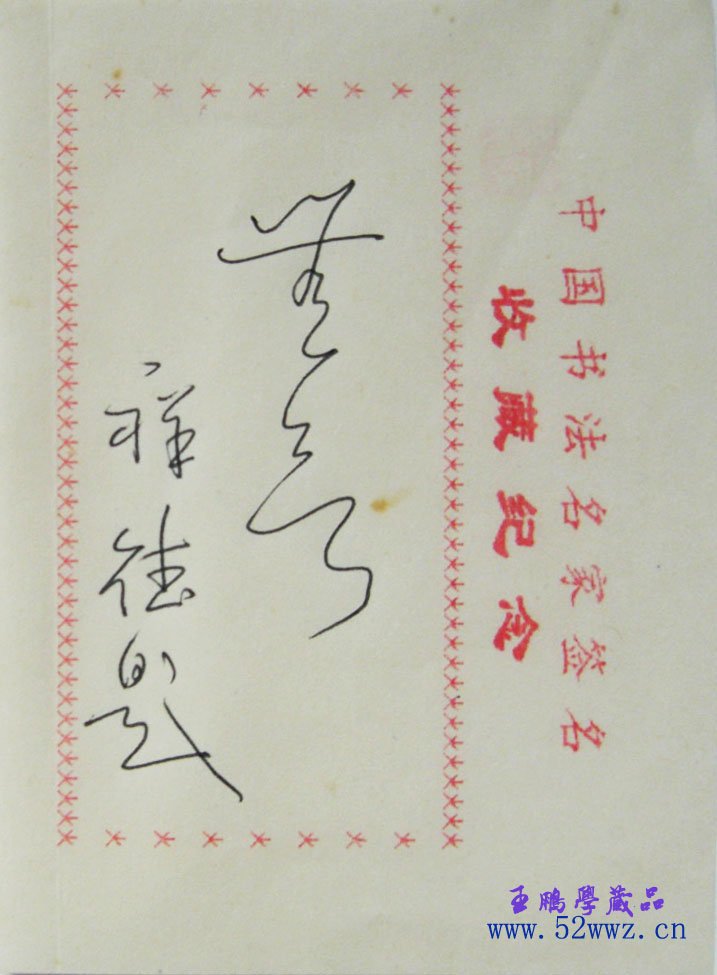 中国书法名家签名
收藏纪念
祥德題
王鵬學藏品
www.52wwz.cn